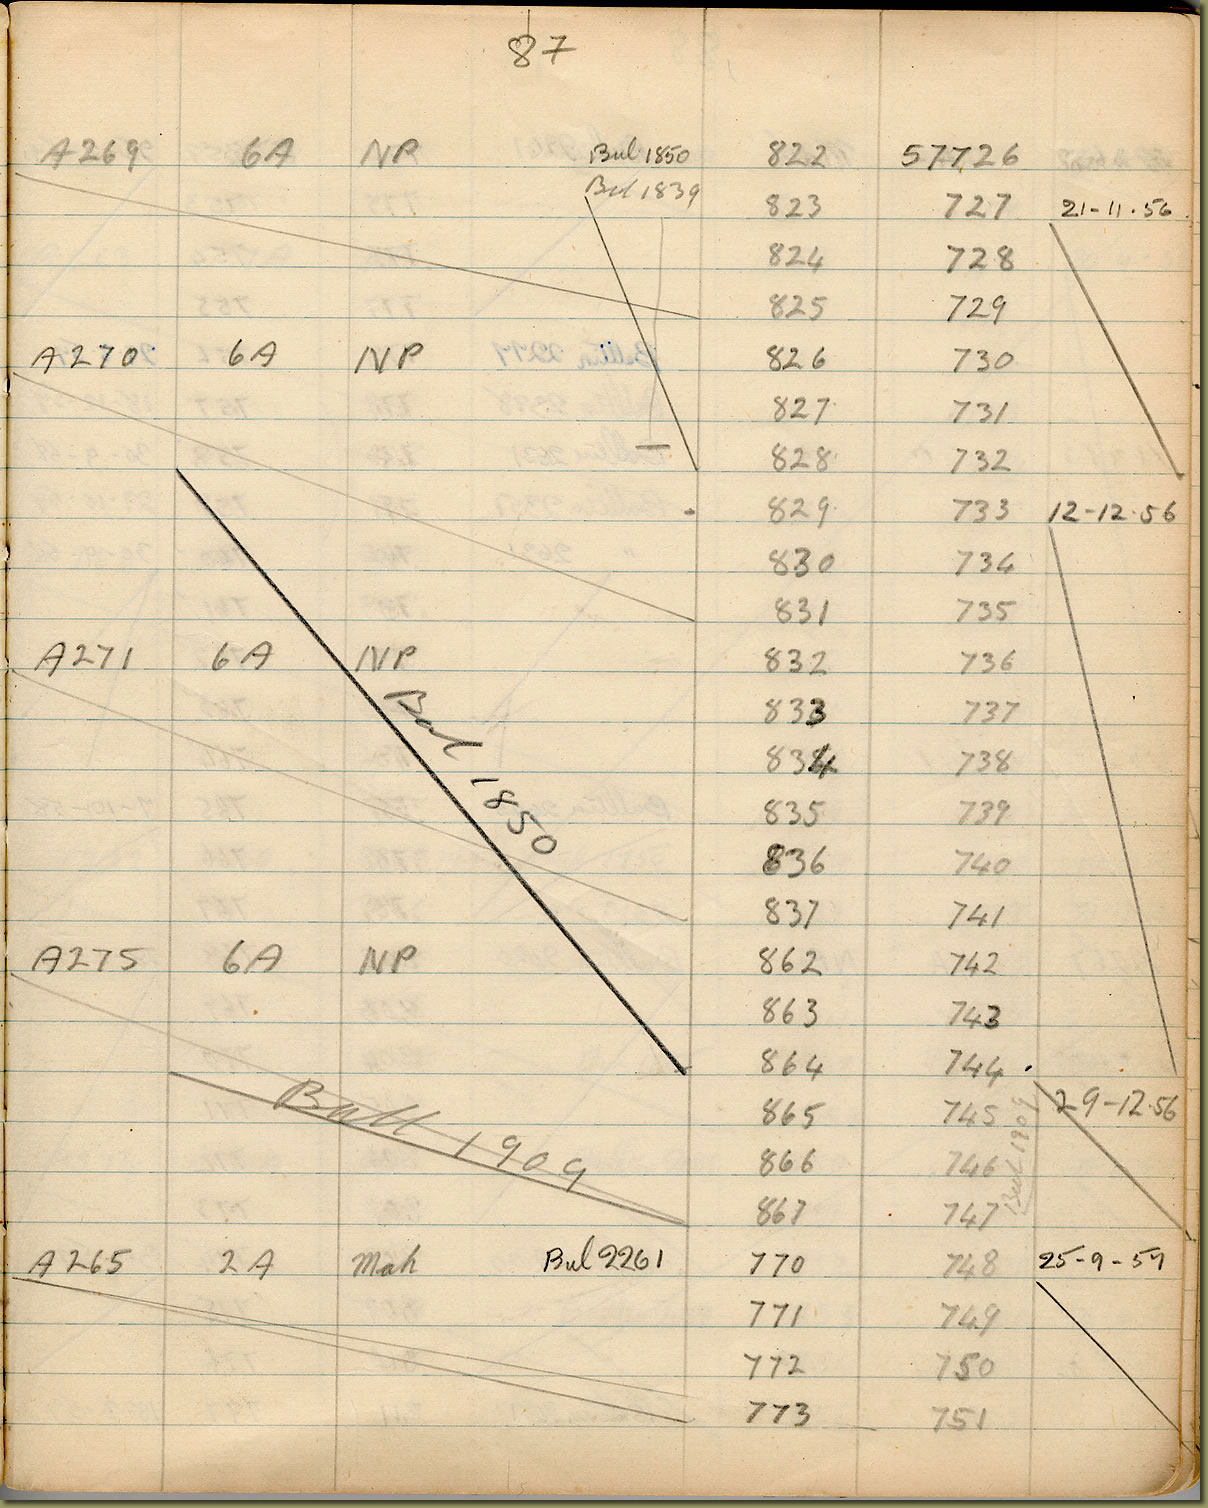 87
A269 6A NP Bul 1850 822 57726
Bul 1839
823 727 21-11-56
824 728
825 729
A270 6A NP 826 730
827 731
828 732
829 733 12-12-56
830 734
831 735
A271 6A NP 832 736
833 737
Bul 1850
834 738
835 739
836 740
837 741
A275 6A NP 862 742
863 743
864 744
Bull 1909
865 745 29-12-56
Bul 1909
866 746
867 747
A265 2A Mah Bul 2261 770 748 25-9-59
771 749
772 750
773 751